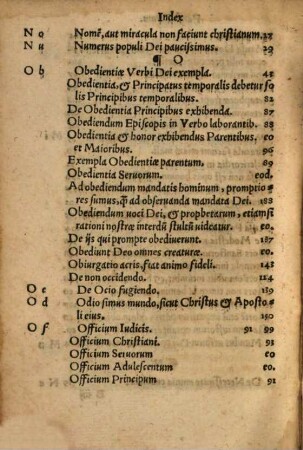 Index
N o Nomẽ, aut miracula non faciunt christianum. 25
N u Numerus populi Dei paucissimus. 29
¶ O
O b Obedientiæ Verbi Dei exempla. 45
Obedientia, & Principatus temporalis debetur so
lis Principibus temporalibus. 82
De Obedientia Principibus exhibenda. 87
Obediendum Episcopis in Verbo laborantib. 88
Obedientia & honor exhibendus Parentibus, eo
et Maioribus. 96
Exempla Obedientiæ parentum. 89
Obedientia Seruorum. eod.
Ad obediendum mandatis hominum, promptio
res sumus, q̃ ad obseruanda mandata Dei. 188
Obediendum uoci Dei, & prophetarum, etiamsi
rationi nostræ interdũ stultũ uideatur. eo.
De ijs qui prompte obediuerunt. 187
Obediunt Deo omnes creaturæ. eo.
Obiurgatio acris, fiat animo fideli. 124
De non occidendo. 114
O c De Ocio fugiendo. 139
O d Odio simus mundo, sicut Christus & Aposto
li eius. 150
O f Officium Iudicis. 91 99
Officium Christiani. eo.
Officium Seruorum eo
Officium Adulescentum eo.
Officium Principum 91